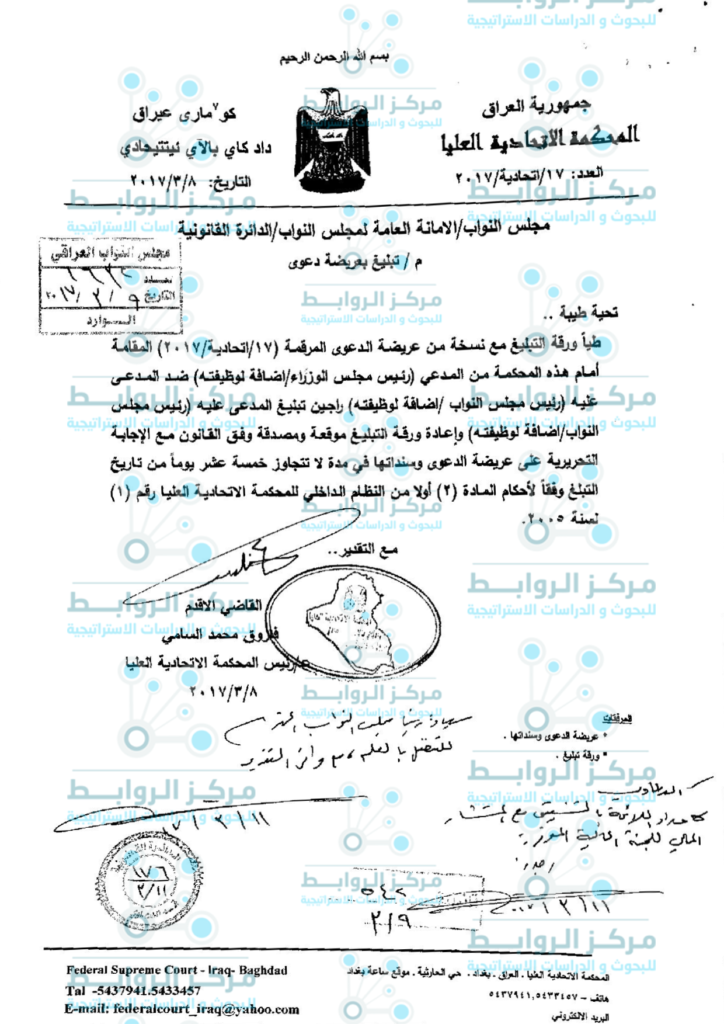 بسم الله الرحمن الرحيم
جمهورية العراق
المحكمة الاتحادية العليا
العدد: ١٧/اتحادية/٢٠١٧
كو٧مارى عيراق
داد كاي بالآي ئيتتيحادي
التاريخ: ٢٠١٧/٣/٨
مجلس النواب/الامانة العامة لمجلس النواب/الدائرة القانونية
م / تبليغ بعريضة دعوى
مجلس النواب العراقي
التاريخ ٩ / ٣ / ٢٠١٧
الـــــوارد
تحية طيبة ..
طياً ورقة التبليغ مع نسخة من عريضة الدعوى المرقمة (١٧/اتحادية/٢٠١٧) المقامة
أمام هذه المحكمة من المدعي (رئيس مجلس الوزراء/إضافة لوظيفته) ضد المدعى
عليه (رئيس مجلس النواب /إضافة لوظيفته) راجين تبليغ المدعى عليه (رئيس مجلس
النواب/اضافة لوظيفته) وإعادة ورقة التبليغ موقعة ومصدقة وفق القانون مع الإجابة
التحريرية على عريضة الدعوى وسنداتها في مدة لا تتجاوز خمسة عشر يوماً من تاريخ
التبلغ وفقاً لأحكام المادة (٢) أولا من النظام الداخلي للمحكمة الاتحادية العليا رقم (١)
لسنة ٢٠٠٥.
مع التقدير..
القاضي الاقدم
فاروق محمد السامي
ع/رئيس المحكمة الاتحادية العليا
٢٠١٧/٣/٨
المرفقات
* عريضة الدعوى وسنداتها .
* ورقة تبليغ .
السيد رئيس مجلس النواب المحترم
للتفضل بالعلم مع وافر التقدير
٢٠١٧/٣/١١
١٧٦
٣/١١
٥٤٢
٣/٩
٢٠١٧/٣/١١
Federal Supreme Court - Iraq- Baghdad
Tal -5437941.5433457
E-mail: federalcourt_iraq@yahoo.com
المحكمة الاتحادية العليا . العراق . بغداد . حي الحارثية . موقع ساعة بغداد
هاتف – ٥٤٣٧٩٤١,٥٤٣٣٤٥٧
البريد الالكتروني
مركز الروابط
للبحوث و الدراسات الاستراتيجية